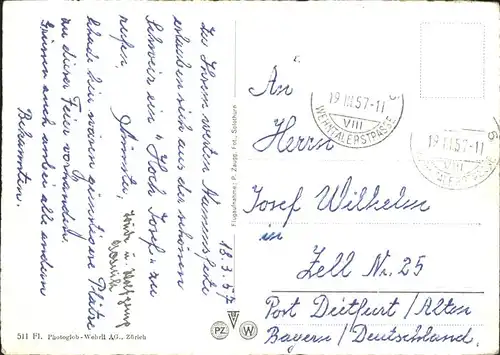 18.3.57
Zu Ihrem werten Namensfeste
erlauben sich aus der schönen
Schweiz ein "Hoch Josef" zu
rufen.
Schade hin wären günstigere Plätze
zu dieser Feier vorhanden.
Grüssen auch anbei alle andern
Bekannten.
An
Herrn
Josef Wilhelm
in
Zell Nr. 25
Post Dietfurt / Altm
Bayern / Deutschland.
19.III.57-11
VIII
WEHNTALERSTRASSE
19.III.57-11
VIII
Flugaufnahme: P. Zaugg, Fot., Solothurn
PZ
W
511 Fl. Photoglob-Wehrli AG., Zürich